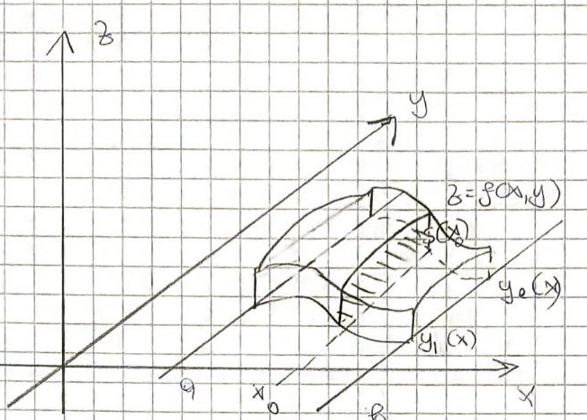 z
y
z=f(x,y)
S(x₀)
y₂(x)
y₁(x)
a
x₀
b
x